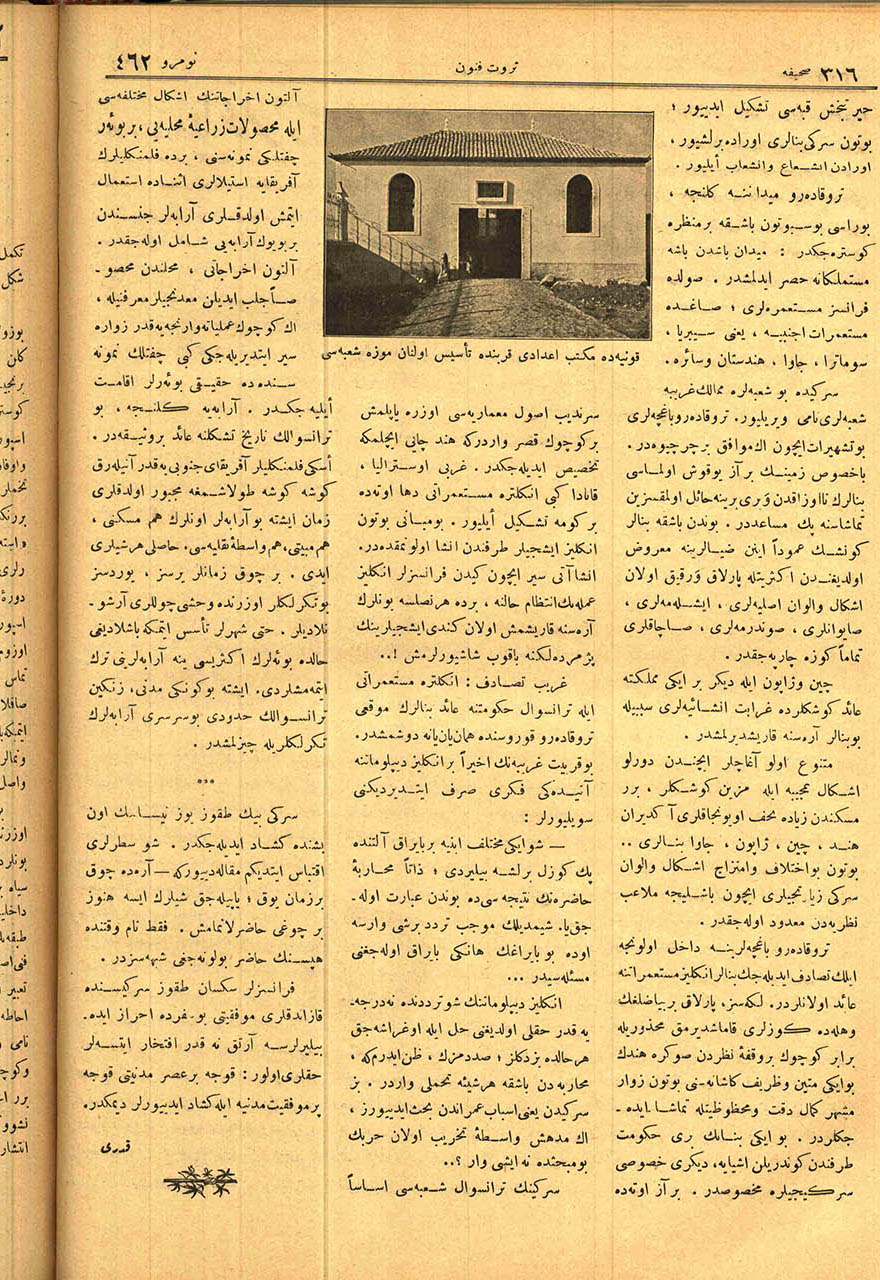 صحیفه ٣١٦
ثروت فنون
نومرو ٤٦٢
حیرتبخش قبه‌سی تشکیل ایدییور ؛
بوتون سرکی بنالری اوراده برلشیور ،
اورادن انشعاع وانشعاب أیلیور .
تروقاده‌رو میداننه کلنجه ،
بوراسی بوسبوتون باشقه برمنظره
کوستره‌جکدر : میدان باشدن باشه
مستملکاته حصر ایدلمشدر . صولده
فرانسز مستعمره‌لری ؛ صاغده
مستعمرات اجنبیه ، یعنی سیبریا ،
سوماترا ، جاوا ، هندستان وسائره .
سرکیده بو شعبه‌لره ممالک غریبه
شعبه‌لری نامی ویریلیور . تروقاده‌رو باغچه‌لری
بو تشهیرات ایچون اك موافق بر چرچیوه‌در .
باخصوص زمینك برآز یوقوش اولماسی
بنالرك تا اوزاقدن و بری برینه حائل اولمقسزین
تماشاسنه پك مساعددر . بوندن باشقه بنالر
کونشك عموداً اینن ضیالرینه معروض
اولدیغندن اکثریتله پارلاق ورقیق اولان
اشکال والوان اصلیه‌لری ، ایشله‌مه‌لری ،
صایوانلری ، صوندرمه‌لری ، صاچاقلری
تماماً کوزه چارپه‌جقدر .
چین وژاپون ایله دیکر بر ایکی مملکته
عائد کوشکلرده غرابت انشائیه‌لری سببیله
بوبنالر آره‌سنه قاریشدیرلمشدر .
متنوع اولو آغاچلر ایچندن دورلو
اشکال عجیبه ایله مزین کوشکلر ، برر
مسکندن زیاده تحف اویونجاقلری آکدیران
هند ، چین ، ژاپون ، جاوا بنالری ..
بوتون بواختلاف وامتزاج اشکال والوان
سرکی زیارتجیلری ایچون باشلیجه ملاعب
نظریه‌دن معدود اوله‌جقدر .
تروقاده‌رو باغچه‌لرینه داخل اولونجه
ایلك تصادف ایدیله‌جك بنالر انکلیز مستعمراتنه
عائد اولانلردر . لکه‌سز ، پارلاق بربیاضلغك
وهله‌ده کوزلری قاماشدیرمق محذوریله
برابر کوچوك بروقفهٔ نظردن صوکره هندك
بوایکی متین وظریف کاشانه‌سنی بوتون زوار
مشهر کمال دقت ومحظوظیتله تماشا ایده‌-
جکلردر . بو ایکی بنانك بری حکومت
طرفندن کوندریلن اشیایه ، دیکری خصوصی
سرکیجیلره مخصوصدر . برآز اوته‌ده
قونیه‌ده مکتب اعدادی قربنده تأسیس اولنان موزه شعبه‌سی
سرندیب اصول معماریه‌سی اوزره یاپلمش
برکوچوك قصر واردرکه هند چایی ایچلمکه
تخصیص ایدیله‌جکدر . غربی اوسترالیا ،
قانادا کبی انکلتره مستعمراتی دها اوته‌ده
برکومه تشکیل أیلیور . بومبانی بوتون
انکلیز ایشجیلر طرفندن انشا اولونمقده‌در .
انشاآتی سیر ایچون کیدن فرانسزلر انکلیز
عمله‌نك انتظام حالنه ، برده هرنصلسه بونلرك
آره‌سنه قاریشمش اولان کندی ایشجیلرینك
پژمرده‌لکنه باقوب شاشیورلرمش !..
غریب تصادف : انکلتره مستعمراتی
ایله ترانسوال حکومتنه عائد بنالرك موقعی
تروقاده‌رو قوروسنده همان یان یانه دوشمشدر .
بوقربیت غریبه‌نك اخیراً برانکلیز دیپلوماتنه
آتیده‌کی فکری صرف ایتدیردیکنی
سویلیورلر :
— شوایکی مختلف ابنیه بربایراق آلتنده
پك کوزل برلشه بیلیردی ؛ ذاتاً محاربهٔ
حاضره‌نك نتیجه سی‌ده بوندن عبارت اوله‌-
جق‌یا . شیمدیلك موجب تردد برشی وارسه
اوده بو بایراغك هانکی بایراق اوله‌جغی
مسئله‌سیدر ...
انکلیز دیپلوماتنك شو ترددنده نه‌درجه‌-
یه قدر حقلی اولدیغنی حل ایله اوغراشه‌جق
هرحالده بزدکلز ؛ صددمزك ، ظن ایدرم‌که ،
محاربه‌دن باشقه هرشیئه تحملی واردر . بز
سرکیدن یعنی اسباب عمراندن بحث ایدییورز ،
اك مدهش واسطهٔ تخریب اولان حربك
بومبحثده نه ایشی وار ؟..
سرکینك ترانسوال شعبه‌سی اساساً
آلتون اخراجاتنك اشکال مختلفه‌سی
ایله محصولات زراعیهٔ محلیه‌یی ، بربوئه‌ر
چفتلکی نمونه‌سنی ، برده فلمنکلیلرك
آفریقایه استیلالری اثناده استعمال
ایتمش اولدقلری آرابه‌لر جنسندن
بربویوك آرابه‌یی شامل اوله‌جقدر .
آلتون اخراجاتی ، محلندن محصو-
صاً جلب ایدیلن معدنجیلر معرفتیله ،
اك کوچوك عملیاته وارنجه‌یه‌قدر زواره
سیر ایتدیریله‌جکی کبی چفتلك نمونه
سنده‌ده حقیقی بوئه‌رلر اقامت
أیلیه‌جکدر . آرابه‌یه کلنجه ، بو
ترانسوالك تاریخ تشکلنه عائد بروثیقه‌در .
أسکی فلمنکلیلر آفریقای جنوبی‌یه‌قدر آتیله‌رق
کوشه کوشه طولاشمغه مجبور اولدقلری
زمان ایشته بو آرابه‌لر اونلرك هم مسکنی ،
هم مبیتی ، هم واسطهٔ نقلیه‌سی ، حاصلی هرشیلری
ایدی . بر چوق زمانلر یرسز ، یوردسز
بو تکرلکلر اوزرنده وحشی چوللری آرشو-
نلادیلر . حتی شهرلر تأسس ایتمکه باشلادیغی
حالده بوئه‌لرك اکثریسی ینه آرابه‌لرینی ترك
ایتمه‌مشلردی . ایشته بوکونکی مدنی ، زنکین
ترانسوالك حدودی بوسرسری آرابه‌لرك
تکرلکلریله چیزلمشدر .
***
سرکی بیك طقوز یوز نیساننك اون
بشنده کشاد ایدیله‌جکدر . شو سطرلری
اقتباس ایتدیکم مقاله دییورکه — آره‌ده چوق
برزمان یوق ؛ یاپیله‌جق شیلرك ایسه هنوز
بر چوغی حاضرلانمامش . فقط تام وقتنده
هپسنك حاضر بولونه‌جغی شبهه‌سزدر .
فرانسزلر سکسان طقوز سرکیسنده
قازاندقلری موفقیتی بو سفرده احراز ایده‌-
بیلیرلرسه آرتق نه قدر افتخار ایتسه‌لر
حقلری اولور : قوجه برعصر مدنیتی قوجه
برموفقیت مدنیه ایله کشاد ایدییورلر دیمکدر .
قدری